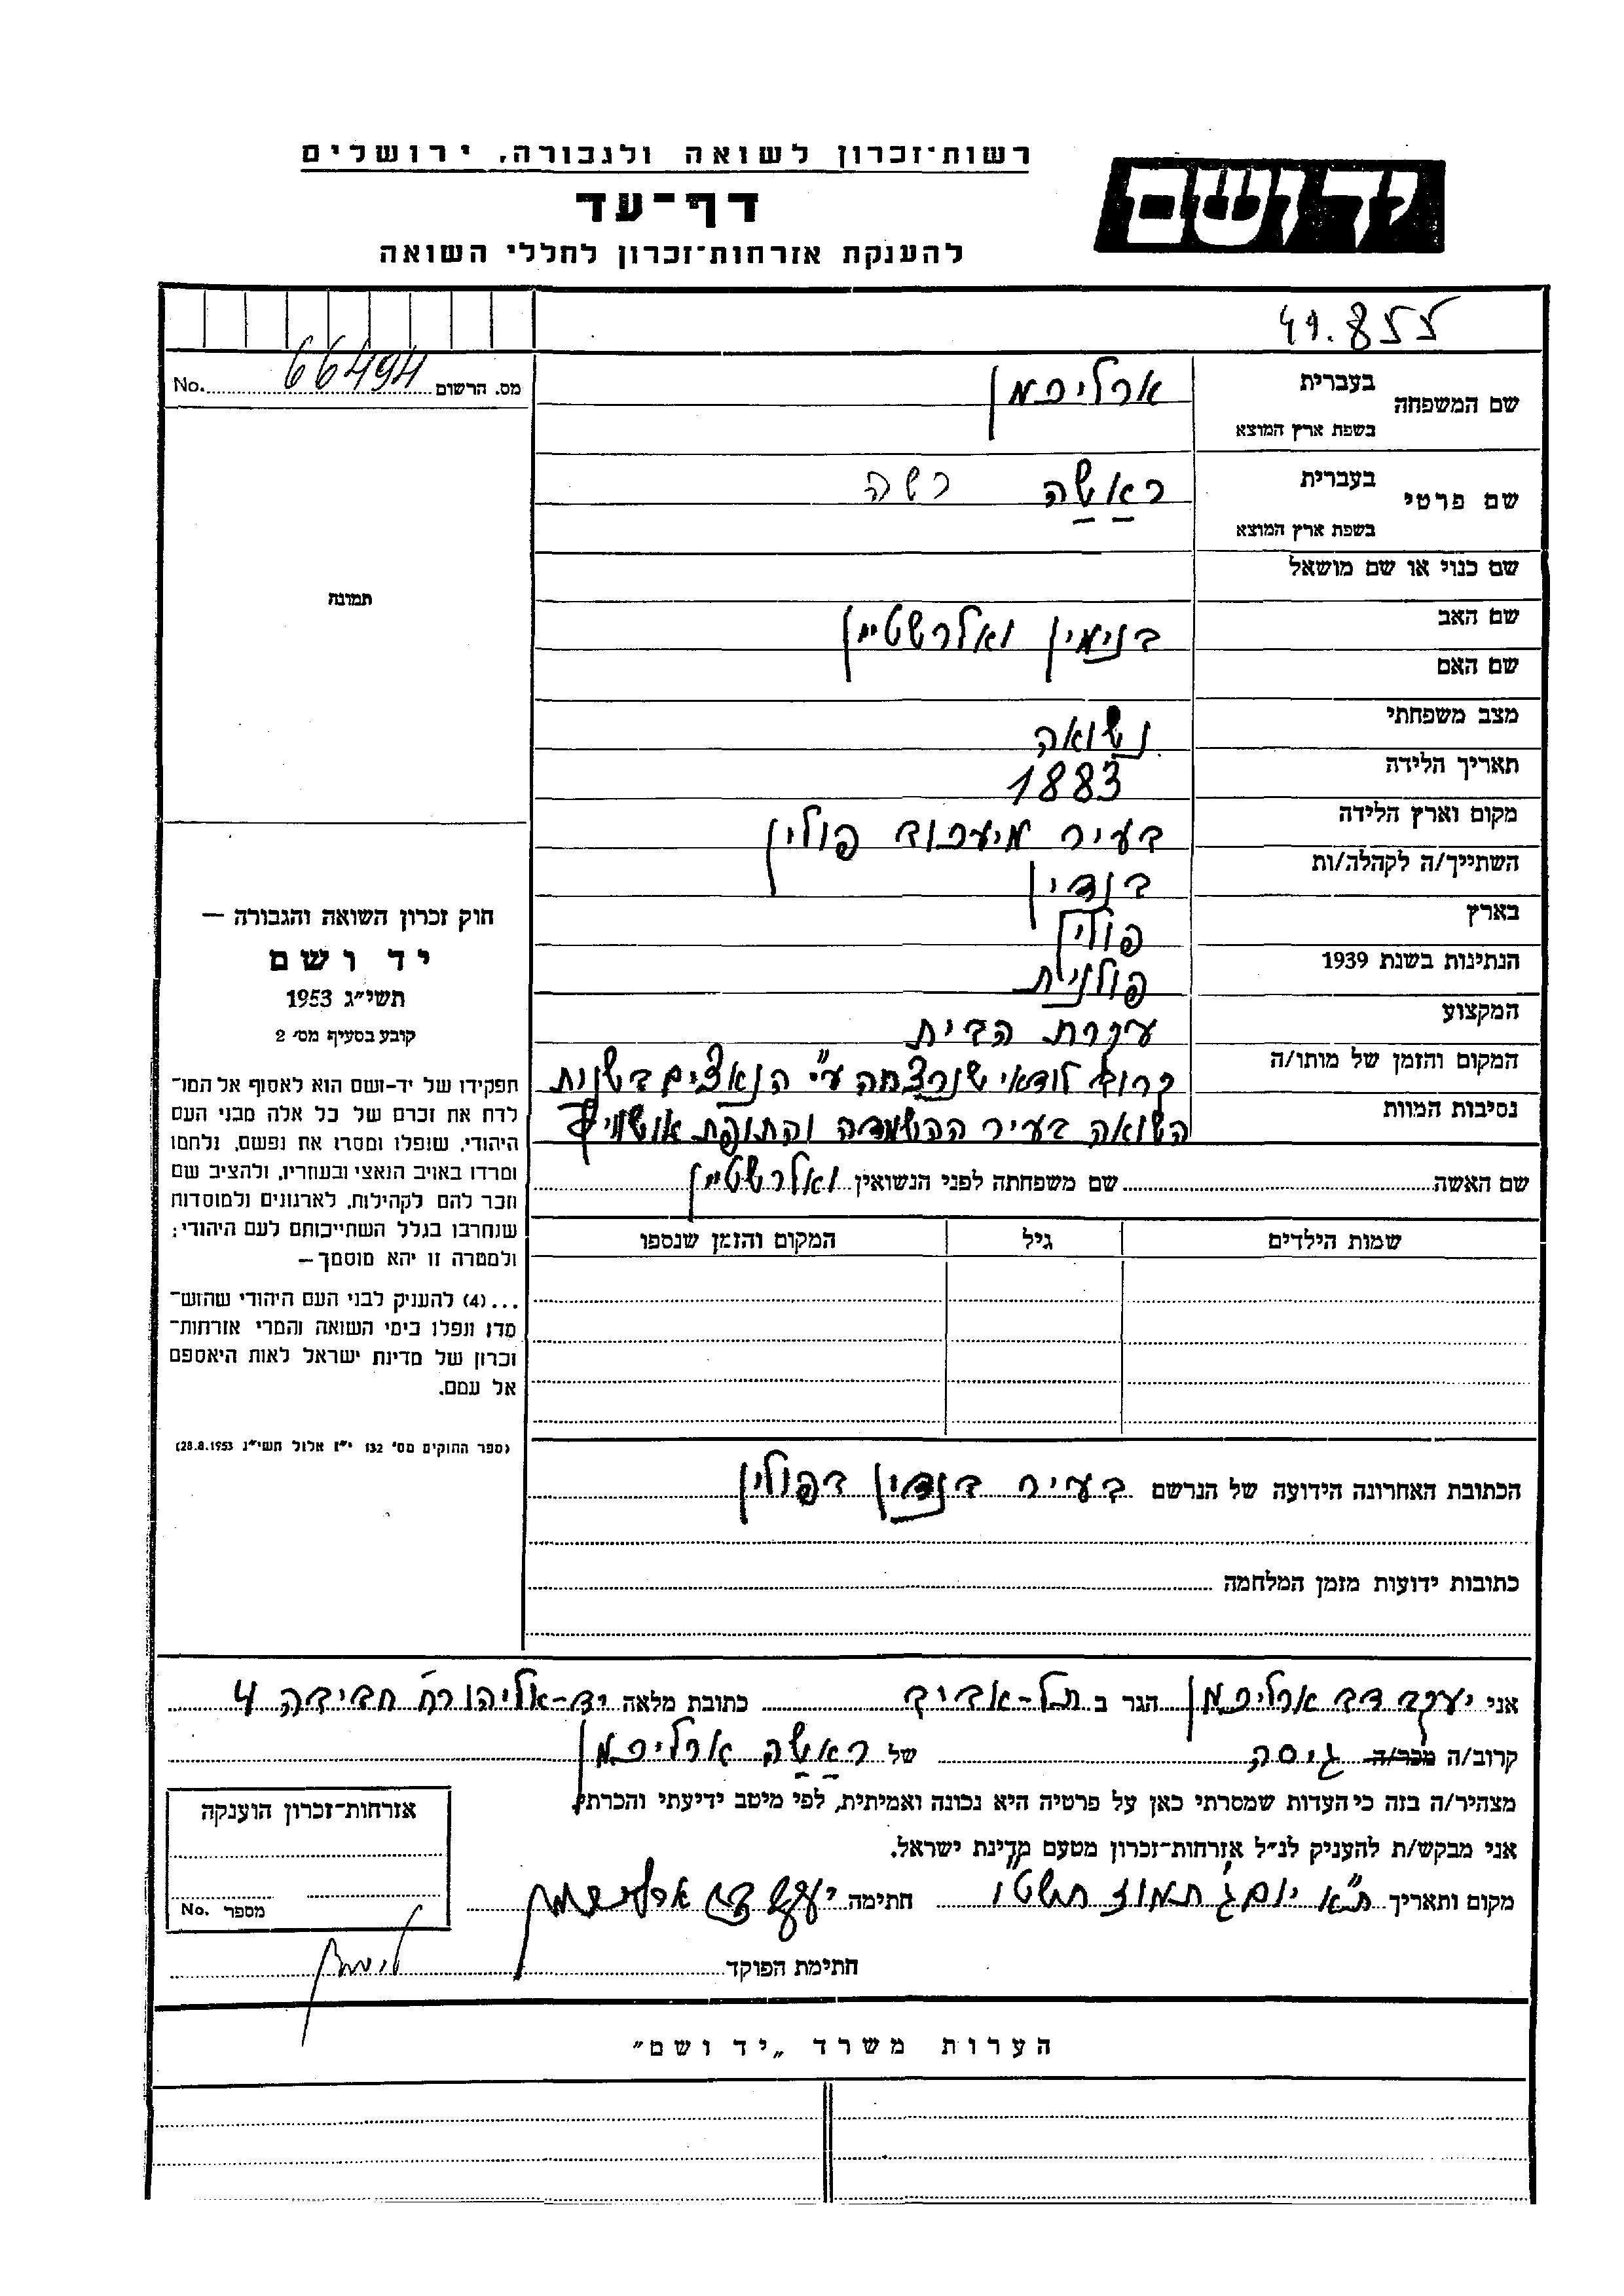 רשות־זכרון לשואה ולגבורה, ירושלים
יד ושם
דף־עד
להענקת אזרחות־זכרון לחללי השואה
41.855
No. 66494 מס. הרשום
שם המשפחה בעברית ארליכמן
בשפת ארץ המוצא
שם פרטי בעברית ראשה רשה
בשפת ארץ המוצא
שם כנוי או שם מושאל
שם האב בנימין ואלרשטיין
שם האם
מצב משפחתי נשואה
תאריך הלידה 1883
מקום וארץ הלידה בעיר פולין
השתייך/ה לקהלה/ות בנדין
בארץ פולין
הנתינות בשנת 1939 פולנית
המקצוע עקרת הבית
המקום והזמן של מותו/ה קרוב לודאי שנרצחה ע"י הנאצים בשנות
נסיבות המוות השואה בעיר ההשמדה והתופת אושוויץ
שם האשה שם משפחתה לפני הנשואין ואלרשטיין
שמות הילדים גיל המקום והזמן שנספו
תמונה
חוק זכרון השואה והגבורה —
יד ושם
תשי״ג 1953
קובע בסעיף מס׳ 2
תפקידו של יד-ושם הוא לאסוף אל המו־
לדת את זכרם של כל אלה מבני העם
היהודי, שנפלו ומסרו את נפשם, נלחמו
ומרדו באויב הנאצי ובעוזריו, ולהציב שם
וזכר להם לקהילות, לארגונים ולמוסדות
שנחרבו בגלל השתייכותם לעם היהודי;
ולמטרה זו יהא מוסמך —
...(4) להעניק לבני העם היהודי שהוש־
מדו ונפלו בימי השואה והמרי אזרחות־
זכרון של מדינת ישראל לאות היאספם
אל עמם.
(ספר החוקים מס׳ 132 י״ז אלול תשי״ג 28.8.1953)
הכתובת האחרונה הידועה של הנרשם בעיר בנדין בפולין
כתובות ידועות מזמן המלחמה
אני יעקב דב ארליכמן הגר ב תל-אביב כתובת מלאה יד-אליהו רח חביבה 4
קרוב/ה מכר/ה גיסה של ראשה ארליכמן
מצהיר/ה בזה כי העדות שמסרתי כאן על פרטיה היא נכונה ואמיתית, לפי מיטב ידיעתי והכרתי.
אני מבקש/ת להעניק לנ״ל אזרחות־זכרון מטעם מדינת ישראל.
מקום ותאריך ת"א יום ג' תמוז תשט"ו חתימה יעקב דב ארליכמן
חתימת הפוקד
אזרחות־זכרון הוענקה
מספר No.
הערות משרד „יד ושם״